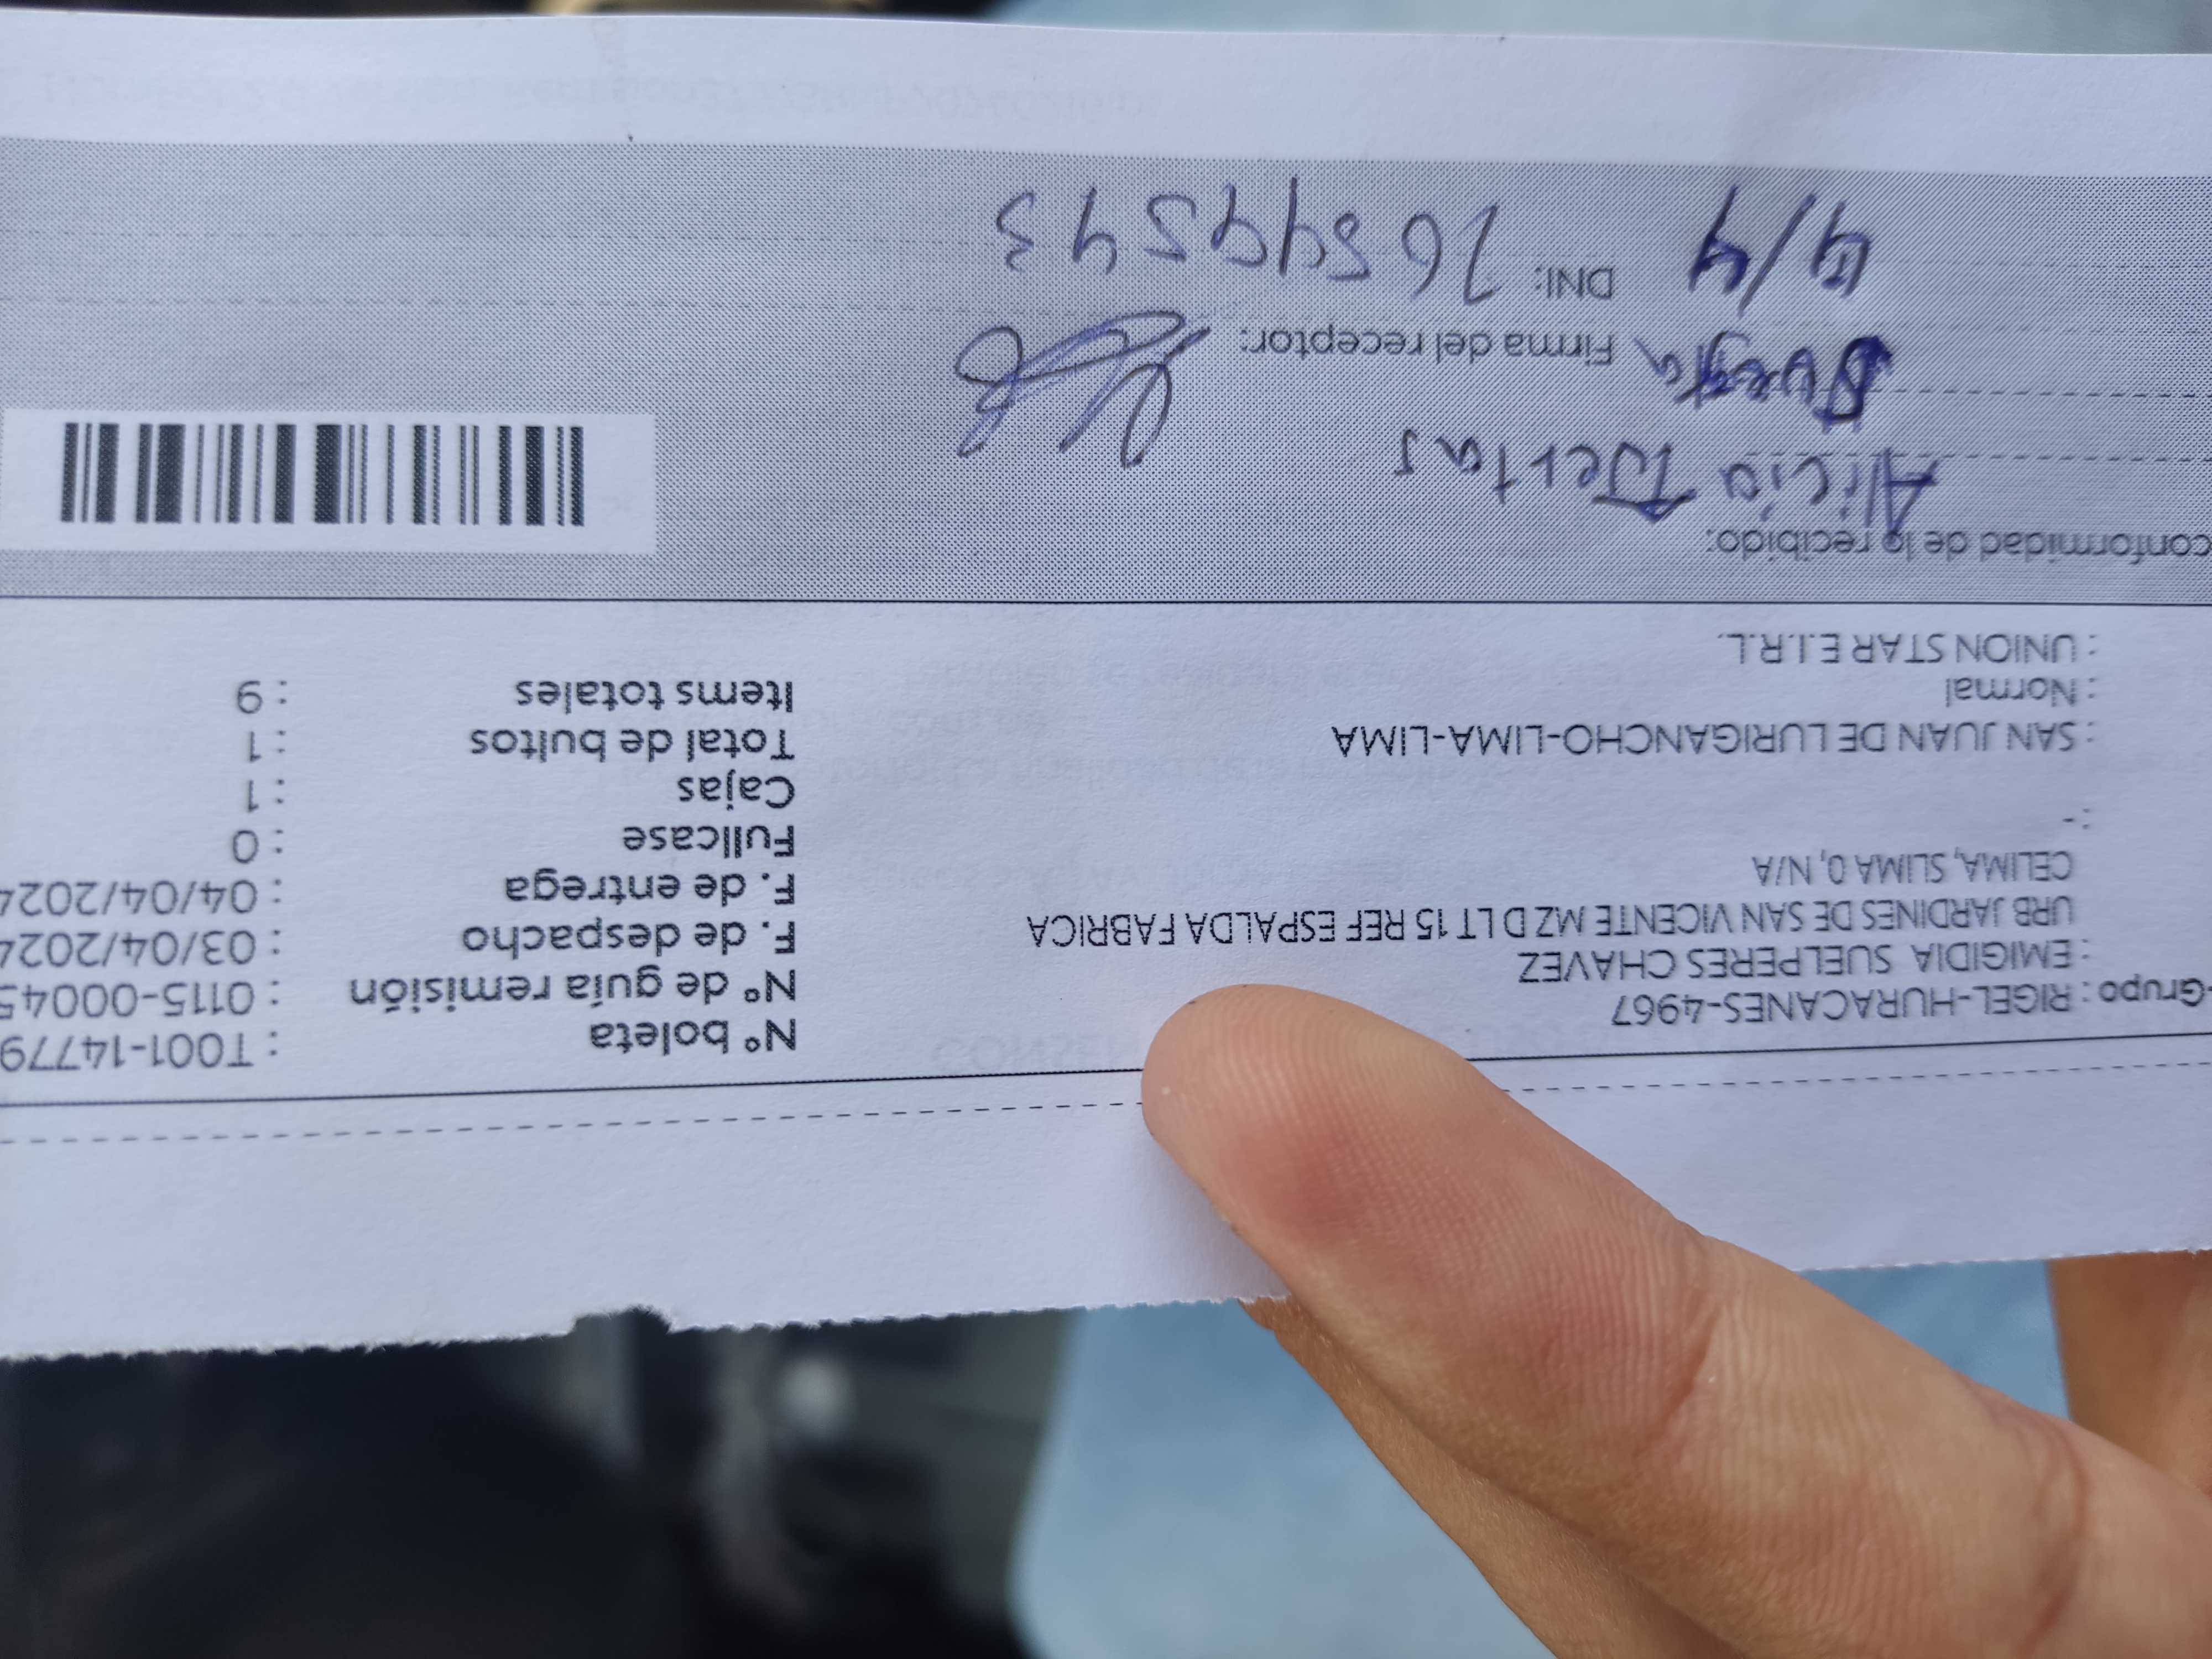 Nº boleta : T001-14779
Nº de guía remisión : 0115-00045
F. de despacho : 03/04/2024
F. de entrega : 04/04/2024
Fullcase : 0
Cajas : 1
Total de bultos : 1
Items totales : 9
-Grupo : RIGEL-HURACANES-4967
: EMIGIDIA SUELPERES CHAVEZ
URB JARDINES DE SAN VICENTE MZ D LT 15 REF ESPALDA FABRICA
CELIMA, SLIMA 0, N/A
: -
: SAN JUAN DE LURIGANCHO-LIMA-LIMA
: Normal
: UNION STAR E.I.R.L.
conformidad de lo recibido:
Alicia
Firma del receptor:
4/4
DNI: 76599543